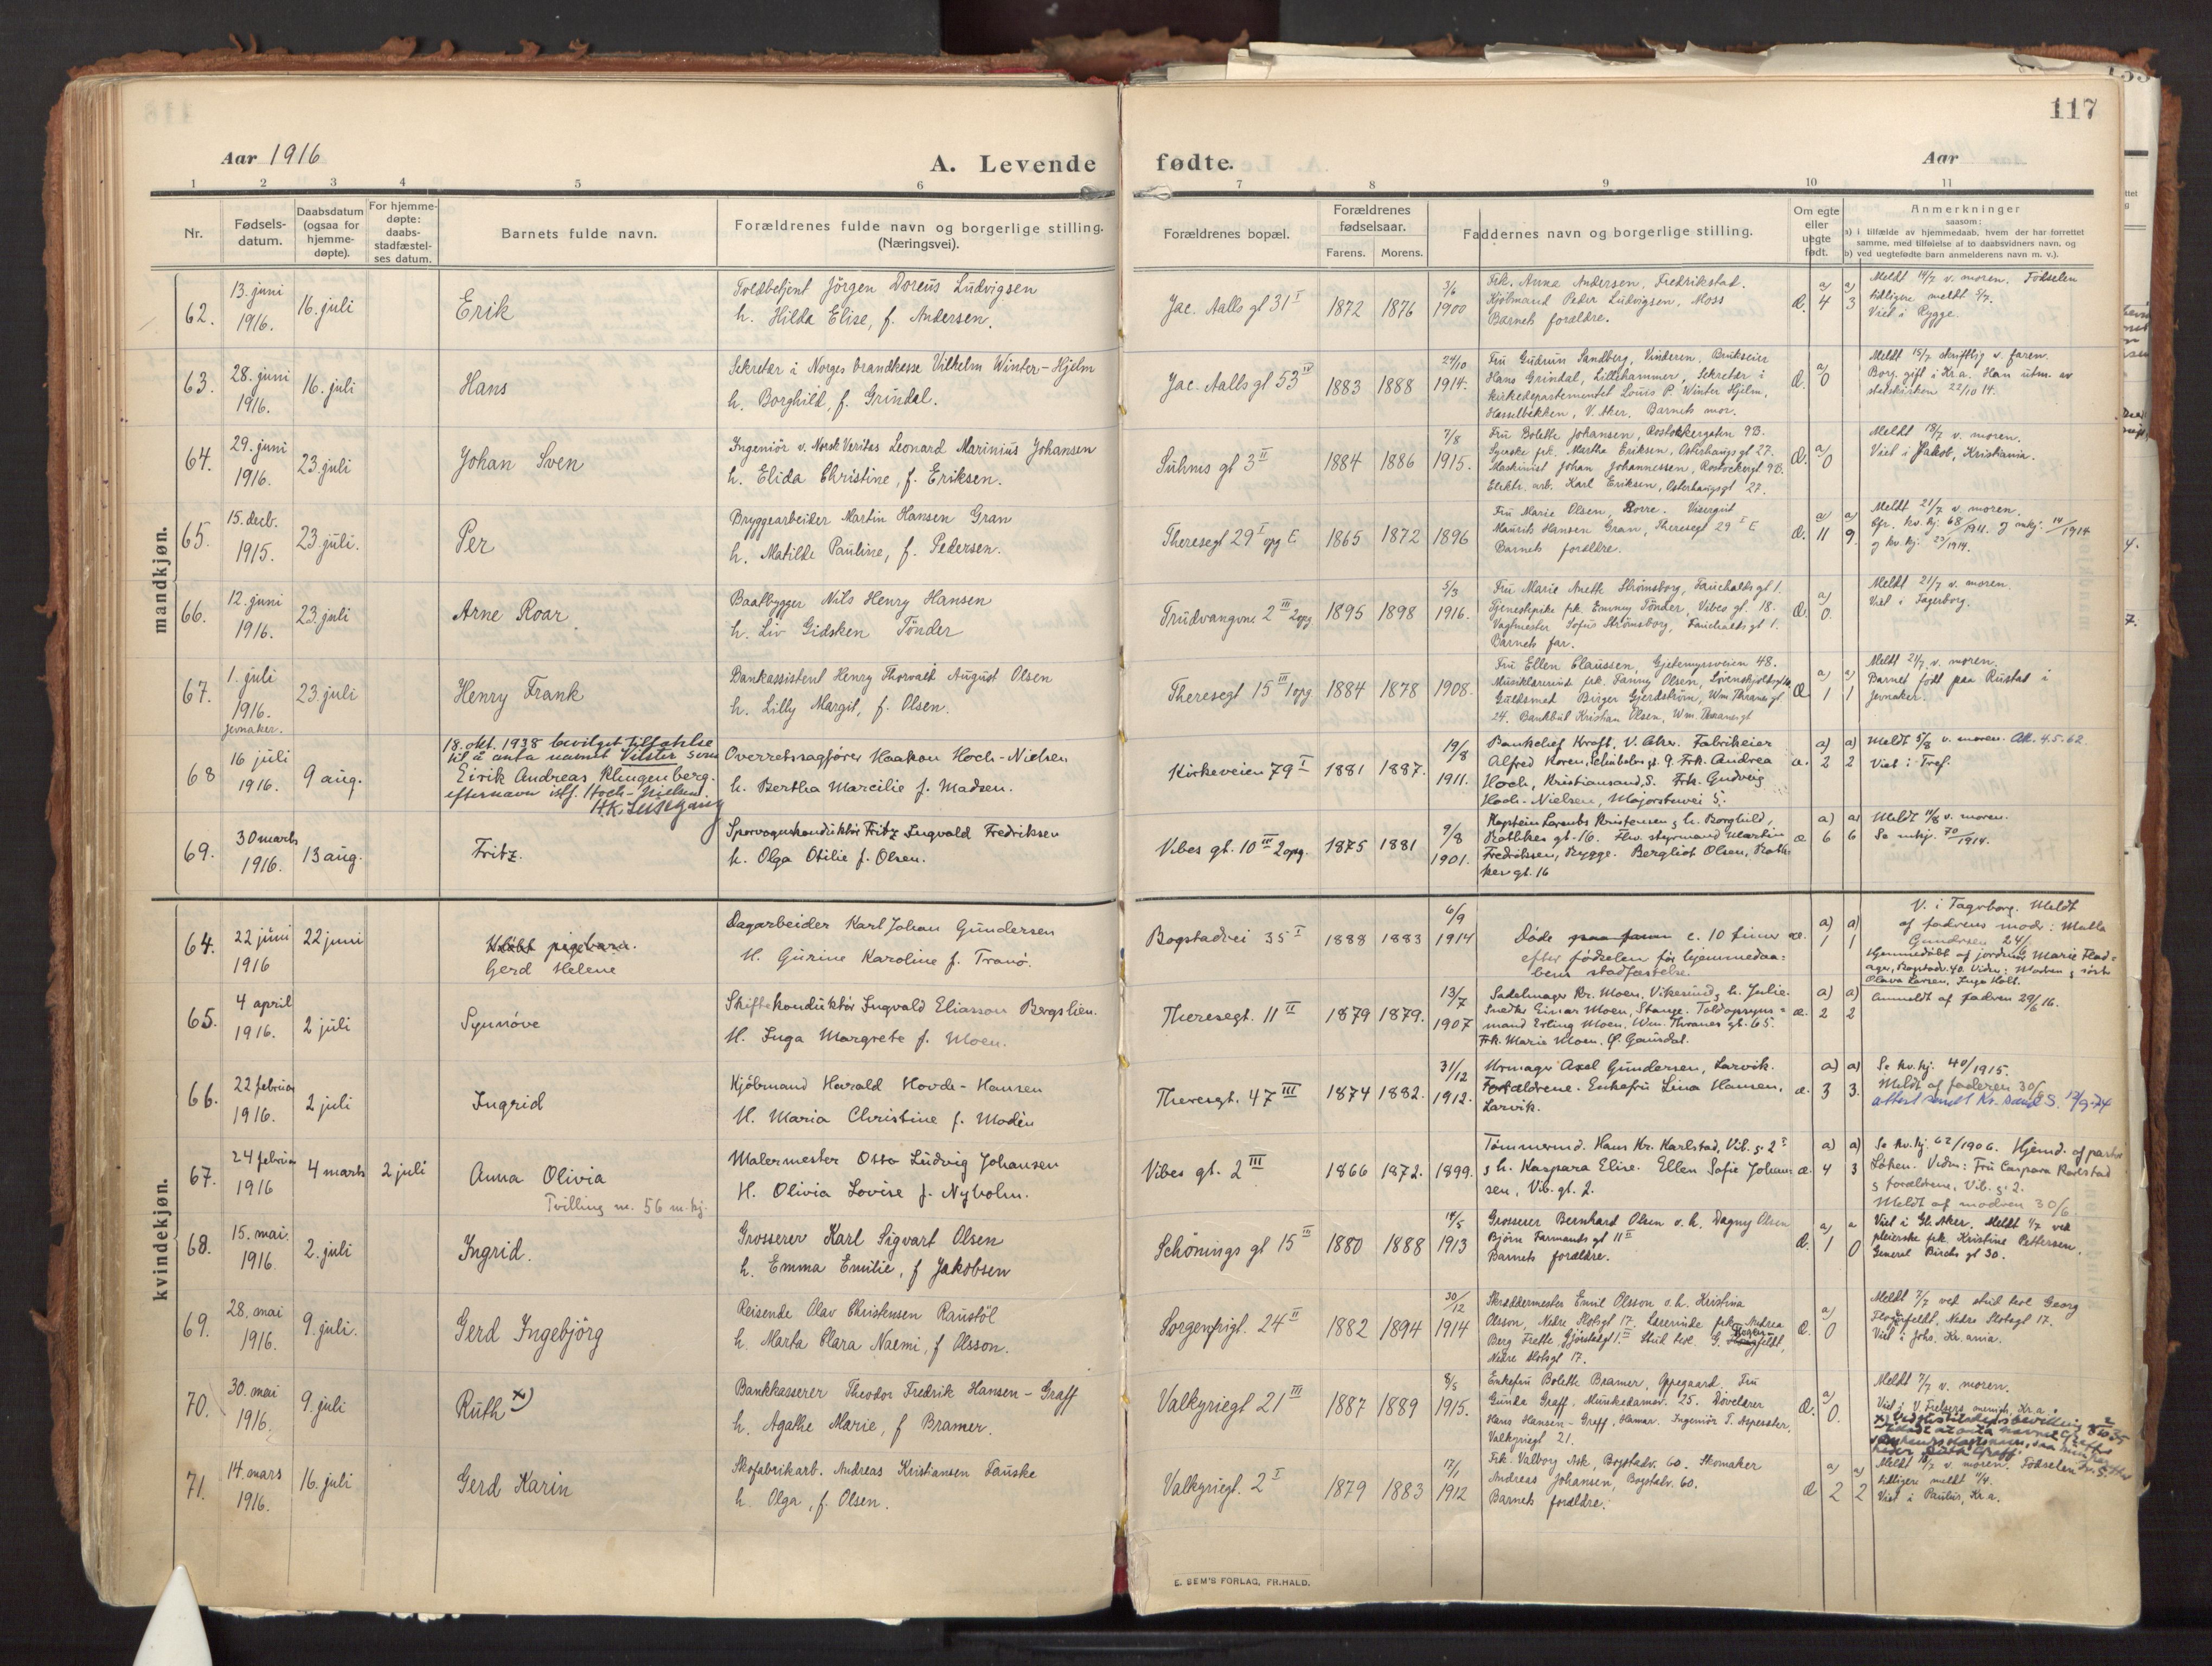 117
Aar 1916
A. Levende fødte.
Aar
1 2 3 4 5 6 7 8 9 10 11
Nr.
Fødsels-
datum.
Daabsdatum
(ogsaa for
hjemme-
døpte).
For hjemme-
døpte:
daabs-
stadfæstel-
ses datum.
Barnets fulde navn.
Forældrenes fulde navn og borgerlige stilling.
(Næringsvei).
Forældrenes bopæl.
Forældrenes
fødselsaar.
Farens. Morens.
Faddernes navn og borgerlige stilling.
Om egte
eller
uegte
født.
Anmerkninger
saasom:
a) i tilfælde av hjemmedaab, hvem der har forrettet
samme, med tilføielse af to daabsvidners navn, og
b) ved uegtefødte barn anmelderens navn m. v.).
mandkjøn.
62.
13. juni
1916.
16. juli
Erik
Toldbetjent Jörgen Doreus Ludvigsen
h. Hilda Elise, f. Andersen.
Jac. Aalls gl 31 I
1872 1876
3/6
1900
Frk. Anna Andersen, Fredrikstad.
Kjöbmand Peder Ludvigsen, Moss
Barnets forældre.
Æ. a) 4 a) 3
Meldt 14/7 v. moren. Födselen
tidligere meldt 5/7.
Viet i Rygge.
63.
28. juni
1916.
16. juli
Hans
Sekretær i Norges brandkasse Vilhelm Winter-Hjelm
h. Borghild, f. Grindal.
Jac. Aalls gl 53 IV
1883 1888
24/10
1914.
Fru Gudrun Sandberg, Vinderen, Brukseier
Hans Grindal, Lillehammer, Sekretær i
kirkedepartementet Louis P. Winter Hjelm,
Hasselbakken, V. Aker. Barnets mor.
Æ. a) 0
Meldt 15/7 skriftlig v. faren.
Borg. gift i Kr.a. Han utm. av
statskirken 22/10 14.
64.
29. juni
1916.
23. juli
Johan Sven
Ingeniör v. Norsk Veritas Leonard Marinius Johansen
h. Elida Christine, f. Eriksen.
Suhms gl 3 II
1884 1886
7/8
1915.
Fru Bolette Johansen, Rostockergaten 9B.
Syerske frk. Martha Eriksen, Osterhausgt 27.
Maskinist Johan Johannessen, Rostockergt 9B.
Elektr. arb. Karl Eriksen, Osterhausgt 27.
Æ. a) 0
Meldt 18/7 v. moren.
Viet i Jakob, Kristiania.
65.
15. decb.
1915.
23. juli.
Per
Bryggearbeider Martin Hansen Gran
h. Matilde Pauline, f. Pedersen.
Theresegt 29 I opg E.
1865 1872 1896
Fru Marie Olsen, Borre. Visergut
Maurits Hansen Gran, Theresegt 29 I E
Barnets forældre.
Æ. a) 11 a) 9.
Meldt 21/7 v. moren.
Cfr. kv. kj. 68/1911. og mkj. 14/1914
og kv kj. 23/1914.
66.
12. juni
1916.
23. juli
Arne Roar
Baatbygger Nils Henry Hansen
h. Liv Gidsken Tönder
Trudvangvn. 2 III 2opg
1895 1898
5/3
1916.
Fru Marie Anette Strömsborg, Fauchaldsgt 1.
Tjenestepike frk. Emmy Tönder, Vibes gt. 18.
Vagtmester Sofus Strömsborg, Fauchaldsgt 1.
Barnets far.
Æ. a) 0.
Meldt 21/7 v. moren.
Viet i Fagerborg.
67.
1. juli
1916.
Jevnaker.
23. juli
Henry Frank
Bankassistent Henry Thorvald August Olsen
h. Lilly Margit, f. Olsen.
Theresegt 15 III 1opg
1884 1878 1908.
Fru Ellen Claussen, Gjetemyrsveien 48.
Musiklærerinde frk. Fanny Olsen,
Guldsmed Birger Gjerdstrum, Wm Thranes gt
24. Bankbud Kristian Olsen, Wm. Thranesgt
Æ. a) 1 a) 1
Meldt 21/7 v. moren.
Barnet födt paa Rustad i
Jevnaker.
68
16 juli
1916.
9 aug.
18. okt. 1938 bevilget tillatelse
til å anta navnet Vister som
Eirik Andreas Klingenberg.
efternavn istf. Hoch-Nielsen.
Overretssagförer Haakon Hoch-Nielsen
h. Bertha Marcilie f. Madsen.
Kirkeveien 79 I
1881 1887.
19/8
1911.
Bankchef Kraft, V. Aker. Fabrikeier
Alfred Koren, Schübelersgt. 9. Frk. Andrea
Hoch, Kristiansand, S. Frk. Gudveig
Hoch-Nielsen, Majorstuvei 5.
æ. a) 2 a) 2
Meldt 5/8 v. moren. Att. 4.5.62.
Viet i Tref.
69.
30 marts
1916.
13 aug.
Fritz.
Sporvognskonduktör Fritz Ingvald Fredriksen
h. Olga Otilie f. Olsen.
Vibes gt. 10 III 2opg.
1875 1881
9/8
1901.
Kaptein Laurentz Kristensen & h. Borghild,
Rathkes gt. 16. Fhv. styrmand Martin
Fredriksen, Rygge. Bergliot Olsen, Rath-
kes gt. 16
æ a) 6 a) 6
Meldt 11/8 v. moren.
Se mkj. 70/1914.
kvindekjøn.
64.
22 juni
1916
22 juni
Udöbt pigebarn.
Gerd Helene
Dagarbeider Karl Johan Gundersen
H. Gurine Karoline f. Tranö.
Bogstadvei 35 I
1888 1883
6/9
1914
Döde paa farm c. 10 timer
efter födselen för hjemmedaa-
bens stadfestelse.
æ. a) 1 a) 1
V. i Fagerborg. Meldt
af faderens moder: Mathea
Gundersen 24/6
Hjemmedöbt af jordmor Marie Flad-
ager, Bogstadv. 40. Vidner: Morben & söster
Olava Larsen, Inga Holt.
65.
4 april
1916.
2 juli
Synnöve
Skiftekonduktör Ingvald Eliasson Bergslien.
H. Inga Margrete f. Moen.
Theresegt. 11 II
1879 1879.
13/7
1907
Sadelmager Kr. Moen, Vikesund, & h. Julie.
Snedker Einar Moen, Stange. Toldopsyns-
mand Erling Moen, Wm. Thranes gt. 65.
Frk. Marie Moen, Ö. Gausdal.
æ. a) 2 a) 2
Anmeldt af fadren 29/6 16.
66.
22 februar
1916.
2 juli
Ingrid
Kjöbmand Harald Hovde-Hansen
H. Maria Christine f. Modin
Theresgt. 47 III
1874 1882.
31/12
1912.
Urmager Axel Gundersen, Larvik.
Forældrene. Enkefru Lina Hansen,
Larvik.
æ. a) 3 a) 3.
Se kv. kj. 40/1915.
Meldt af faderen 30/6
attest sendt Kr. sand S. 12/9-74
67.
24 februar
1916
4 marts
2 juli
Anna Olivia
Tvilling m. 56 m.kj.
Malermester Otto Ludvig Johansen
H. Olivia Lovise f. Nyholm.
Vibes gt. 2 III
1866 1872. 1899.
Tömmermd. Hans Kr. Karlstad, Vib. g. 2 I
& h. Kaspara Elise. Ellen Sofie Johan-
sen, Vib. gt. 2.
æ. a) 4 a) 3
Se kv. kj. 62/1906. Hjemd. af pastor
Löken. Vidn: Fru Caspara Karlstad
& forældrene, Vib. g. 2.
Meldt af modren 30/6.
68.
15. mai.
1916.
2. juli
Ingrid.
Grosserer Karl Sigvart Olsen
h. Emma Emilie, f Jakobsen
Schönings gl 15 III
1880 1888
14/5
1913
Grosserer Bernhard Olsen o.h. Dagny Olsen
Björn Farmands gl 11 II
Barnets forældre.
Æ. a) 1 a 0
Viet i Gl. Aker. Meldt 1/7 ved
pleierske frk. Kristine Pettersen,
General Birchs gt 30.
69.
28. mai
1916.
9. juli.
Gerd Ingebjörg
Reisende Olav Christensen Raustöl
h. Marta Clara Naemi, f Olsson.
Sorgenfrigt. 24 II
1882 1894
30/12
1914
Skræddermester Emil Olsson o.h. Kristina
Olsson, Nedre Slotsgt 17. Lærerinde frk. Andrea
Berg Frette Gjörstadgt 1. III Stud. teol. G.
Nedre Slotsgt 17.
Æ. a) 0
Meldt 7/7 ved stud teol Georg
Nedre Slotsgl 17.
Viet i Joh., Kr.ania.
70.
30. mai
1916.
9. juli
Ruth x)
Bankkasserer Theodor Fredrik Hansen-Graff
h. Agathe Marie, f Bramer.
Valkyriegt 21 III
1887 1889
8/5
1915.
Enkefru Bolette Bramer, Oppegaard, Fru
Gunda Graff, Munkedamsv. 25. Dövelærer
Hans Hansen-Graff, Hamar. Ingeniör T. Aspesæter,
Valkyriegt 21.
Æ. a) 0.
Meldt 7/7 v. moren.
Viet i V. Frelsers menigh. Kr.a.
71.
14. mars
1916.
16. juli
Gerd Karin
Skofabrikarb. Andreas Kristiansen Fauske
h. Olga, f. Olsen.
Valkyriegt. 2 I
1879 1883
17/1
1912
Frk. Valborg Ask, Bogstadv. 60. Skomaker
Andreas Johansen, Bogstadv. 60.
Barnets forældre.
Æ a) 2 a) 2
Meldt 14/7 v. moren. Födselen
tidligere meldt 4/4.
Viet i Paulus, Kr.a.
E. SEM'S FORLAG, FR.HALD.